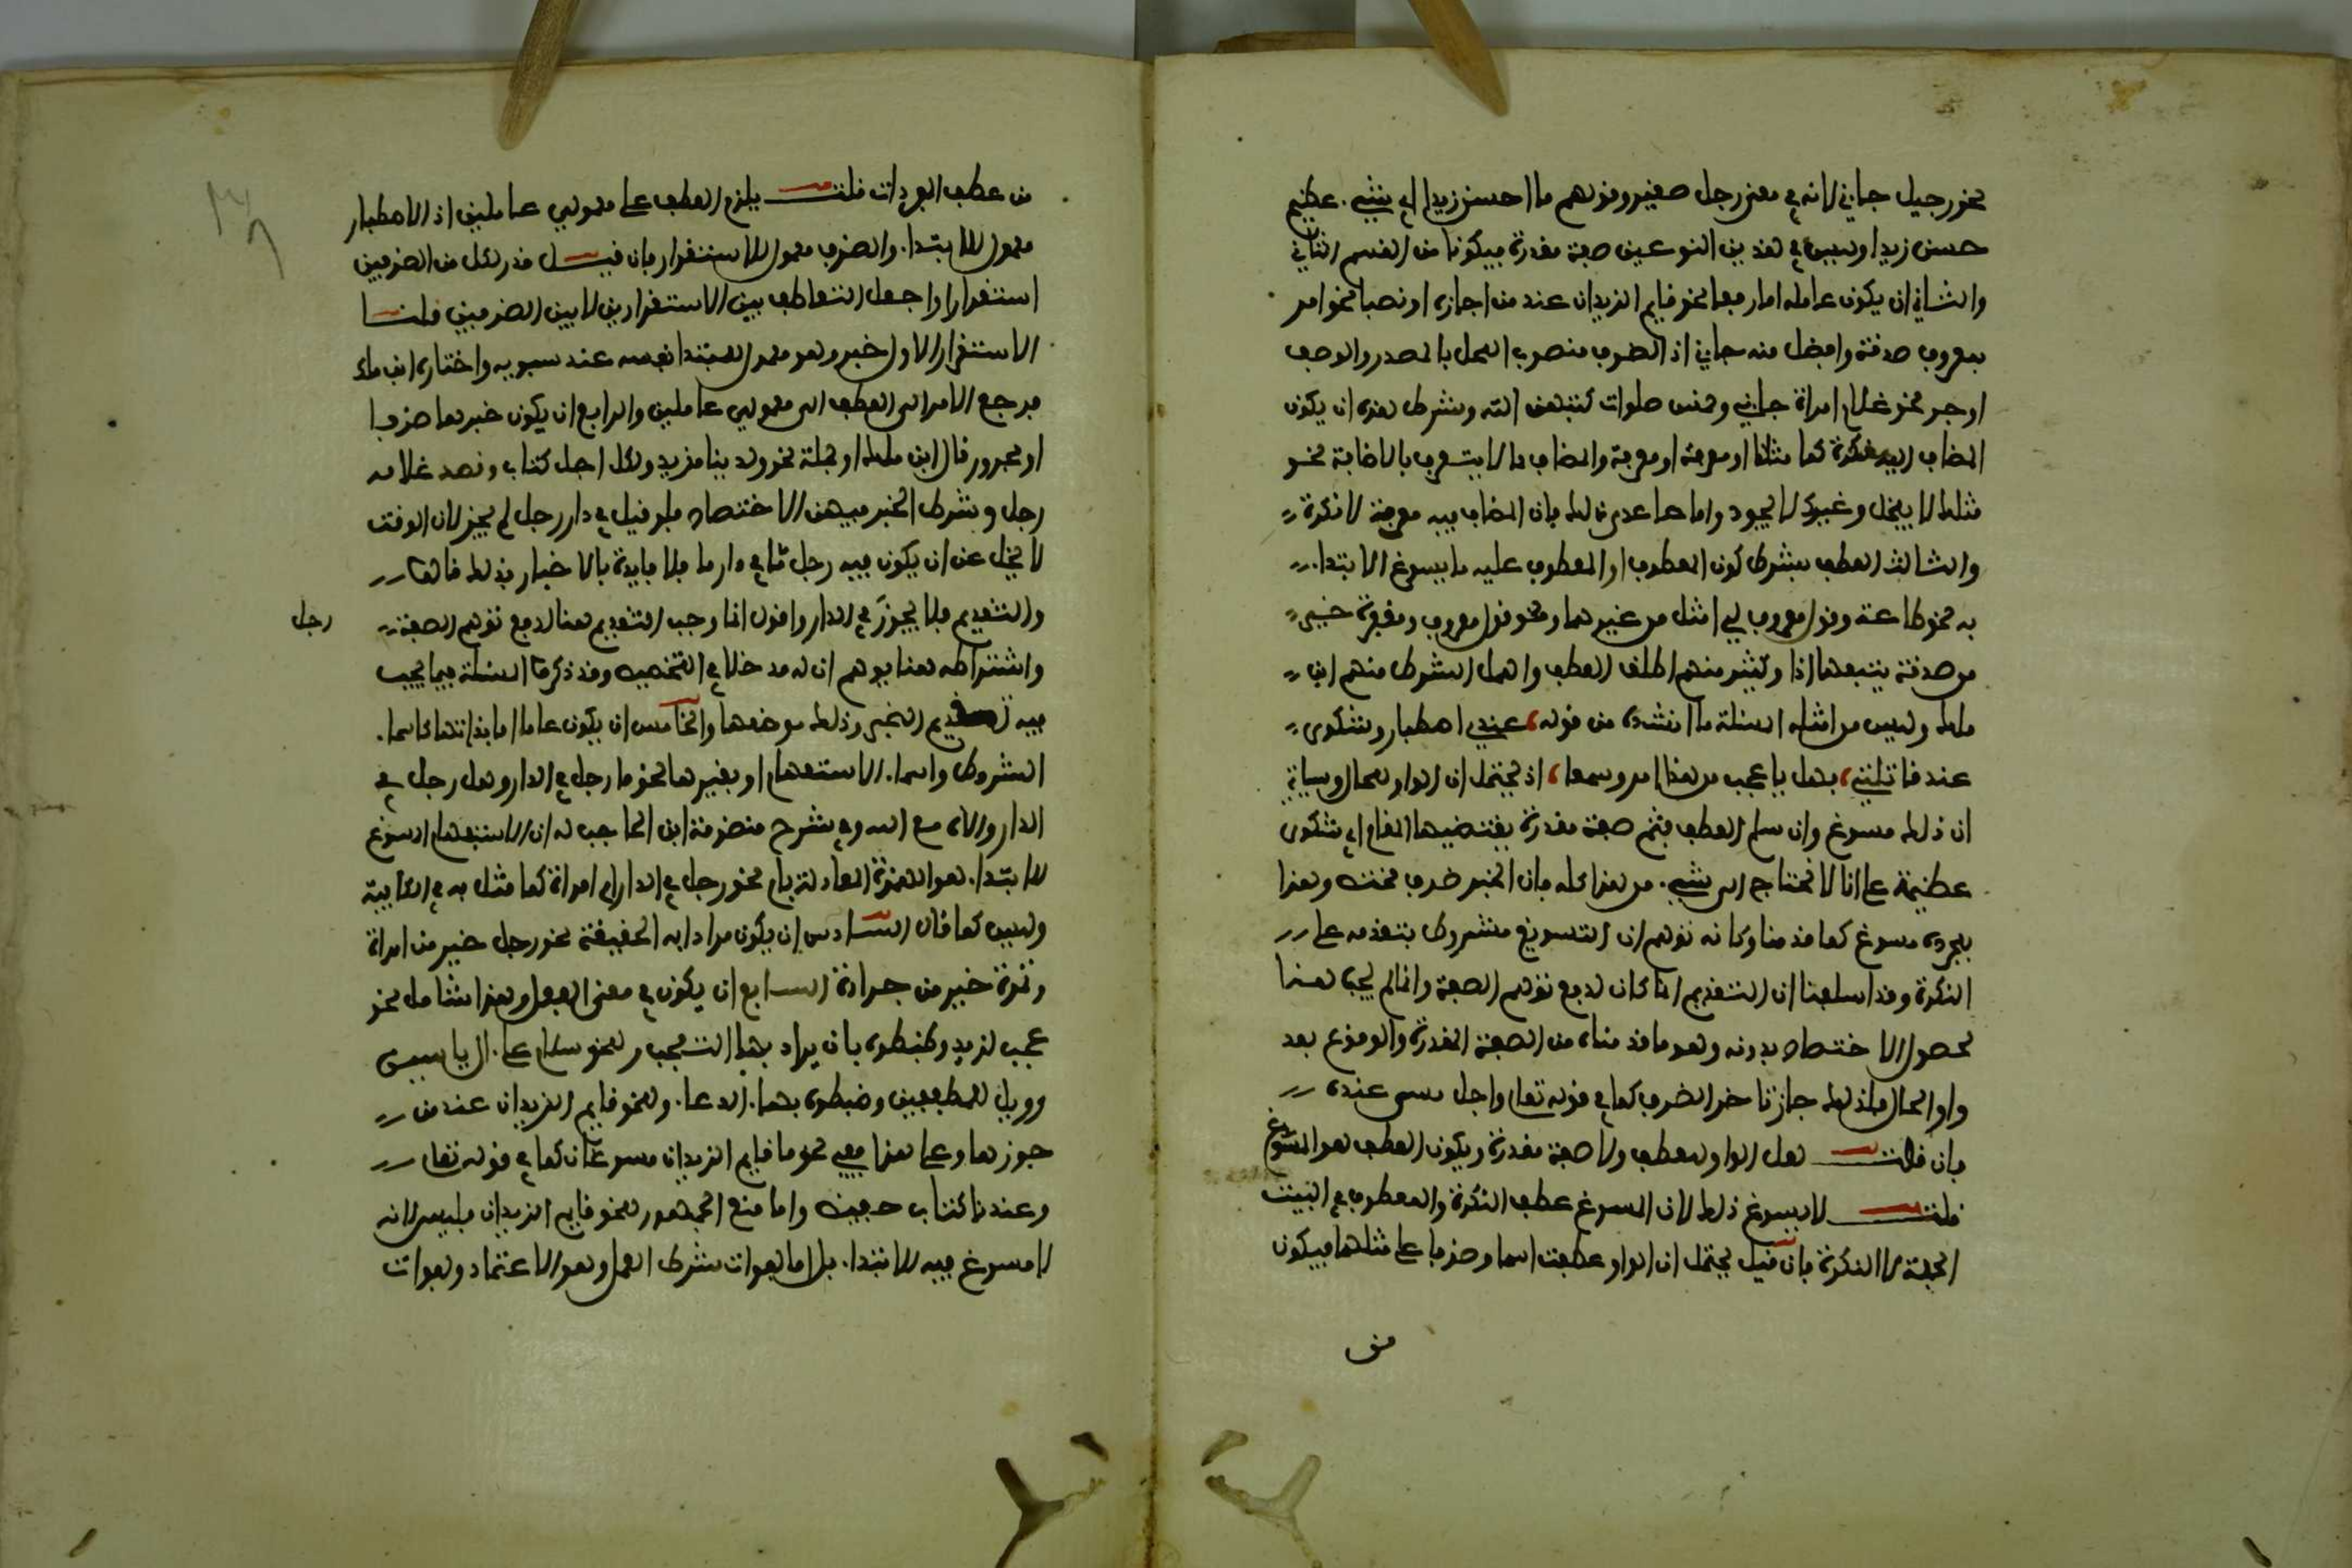 نحو رجيل جاني لانه في معنى رجل صغير وقولهم ما احسن زيدا اي شيء عظيم
حسن زيدا وليس في هذين النوعين صفة مقدرة فيكونا من القسم الثاني
والثالث ان يكون عامله اما رفعا نحو قايم الزيدان عند من اجازه او نصبا نحو امر
بمعروف صدقة وافضل منه جاني اذ الظرف منصوب المحل بالمصدر والوصف
او جر نحو غلام امراة جاني وخمس صلوات كتبهن الله وشرط هذه ان يكون
المضاف اليه نكرة كما مثلنا او معرفة والمضاف مما لا يتعرف بالاضافة نحو
مثلك لا يبخل وغيرك لا يجود واما ما عدى ذلك فان المضاف فيه معرفة لا نكرة
والثالث العطف بشرط كون المعطوف او المعطوف عليه ما يسوغ الابتدا
به نحو طاعة وقول معروف اي امثل من غيرهما ونحو قول معروف ومغفرة خير
من صدقة يتبعها اذا وكثير منهم اطلق العطف واهمل الشرط منهم ابن
ملك وليس من امثلة المسئلة ما انشده من قوله عندي اصطبار وشكوى
عند قاتلتي فهل باعجب من هذا امرو سمعا اذ يحتمل ان الواو للحال وسياتي
ان ذلك مسوغ وان سلم العطف فثم صفة مقدرة يقتضيها المقام اي شكوى
عظيمة على انا لا نحتاج الى شيء من هذا كله فان الخبر ظرف مختص وهذا
بمجرده مسوغ كما قدمنا وكانه توهم ان التسويغ مشروط بتقدمه على
النكرة وقد اسلفنا ان التقديم انما كان لدفع توهم الصفة وانما لم يجب هنا
لحصول الاختصاص بدونه وهو ما قدمناه من الصفة المقدرة والوقوع بعد
واو الحال فلذلك جاز تاخر الظرف كما في قوله تعلى واجل مسمى عنده
فان قلت لعل الواو للعطف ولا صفة مقدرة ويكون العطف هو المسوغ
قلت لا يسوغ ذلك لان المسوغ عطف النكرة والمعطوف في البيت
الجملة لا النكرة فان قيل يحتمل ان الواو عطفت اسما وظرفا على مثلهما فيكون
من
من عطف المفردات قلت يلزم العطف على معمولي عاملين اذ الاصطبار
معمول للابتدا والظرف معمول للاستقرار فان قيل قدر لكل من الظرفين
استقرارا واجعل التعاطف بين الاستقرارين لا بين الظرفين قلت
الاستقرار الاول خبر وهو معمول المبتدا نفسه عند سبويه واختاره ابن ملك
فرجع الامر الى العطف الى معمولي عاملين والرابع ان يكون خبرها ظرفا
او مجرور قال ابن ملك او جملة نحو ولدينا مزيد ولكل اجل كتاب وقصد غلامه
رجل وشرط الخبر فيهن الاختصاص فلو قيل في دار رجل لم يجز لان الوقت
لا يخل عن ان يكون فيه رجل ما في دار ما فلا فايدة بالاخبار بذلك قالوا
والتقديم فلا يجوز في الدار واقول انما وجب التقديم هنا لدفع توهم الصفة
رجل
واشتراطه هنا يوهم ان له مدخلا في التخصيص وقد ذكروا المسئلة فيما يجب
فيه تقديم الخبر وذلك موضعها والخامس ان يكون عاما اما بذاتها كاسما
الشروط واسما الاستفهام او بغيرها نحو ما رجل في الدار وهل رجل في
الدار وااله مع الله وفي شرح منظومة ابن الحاجب له ان الاستفهام المسوغ
للابتدا هو الهمزة المعادلة بام نحو رجل في الدار ام امراة كما مثل به في الكافية
وليس كما قال السادس ان يكون مرادا به الحقيقة نحو رجل خير من امراة
وتمرة خير من جرادة السابع ان يكون في معنى الفعل وهذا شامل لنحو
عجب لزيد وضبطوه بان يراد بها التعجب ولنحو سلام على ال ياسين
وويل للمطففين وضبطوه بها الدعا ولنحو قايم الزيدان عند من
جوزها وعلى هذا ففي نحو ما قايم الزيدان مسوغان كما في قوله تعلى
وعندنا كتاب حفيظ واما منع الجمهور لنحو قايم الزيدان فليس لانه
لا مسوغ فيه للابتدا بل اما لفوات شرط العمل وهو الاعتماد ولفوات